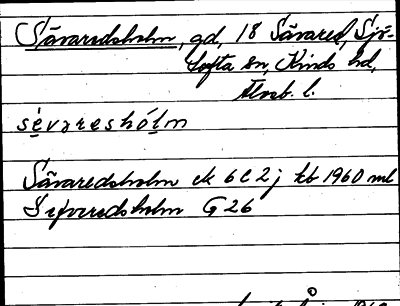 Sävaredsholm, gd, 18 Sävared, Sjö-
tofta sn, Kinds hd,
Älvsb. l.
sèvareshólm
Sävaredsholm ek 6C2j kb 1960 ml
Syveredsholm G 26